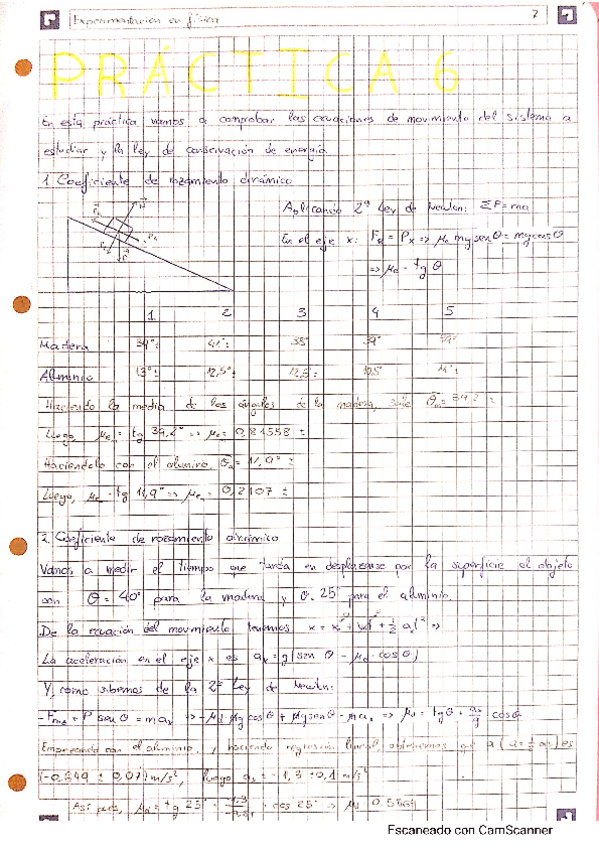 Experimentación en física 2
PRÁCTICA 6
En esta práctica vamos a comprobar las ecuaciones de movimiento del sistema a
estudiar y la ley de conservación de energía.
1. Coeficiente de rozamiento dinámico
Aplicando 2ª Ley de Newton: ΣF=ma
En el eje x:
=> μd = tg θ
1 2 3 4 5
Madera 41° 38° 39°
Aluminio 13° 12,5° 12,5 10,5 11°
Haciendo la media de los ángulos de la madera, sale θm = 39,2 ±
Luego, μe = tg 39,2° => μe = 0,81558 ±
Haciéndolo con el aluminio, θa = 11,9° ±
Luego, μe = tg 11,9° => μe = 0,2107 ±
2. Coeficiente de rozamiento dinámico
Vamos a medir el tiempo que tarda en desplazarse por la superficie el objeto
con θ = 40° para la madera y θ = 25 para el aluminio.
De la ecuación del movimiento tenemos
La aceleración en el eje x es ax = g(sen θ - μd · cos θ)
Y, como sabemos de la 2ª Ley de Newton:
-Froz + P sen θ = max => -μd mg cos θ + mg sen θ = max => μd = tg θ + cos θ
Empezando con el aluminio, y haciendo regresión lineal, obtenemos que a es
(-0,649 ± 0,07) m/s², luego ax = -1,3 ± 0,1 m/s²
Así pues, μd = tg 25° · cos 25° => μd
Escaneado con CamScanner